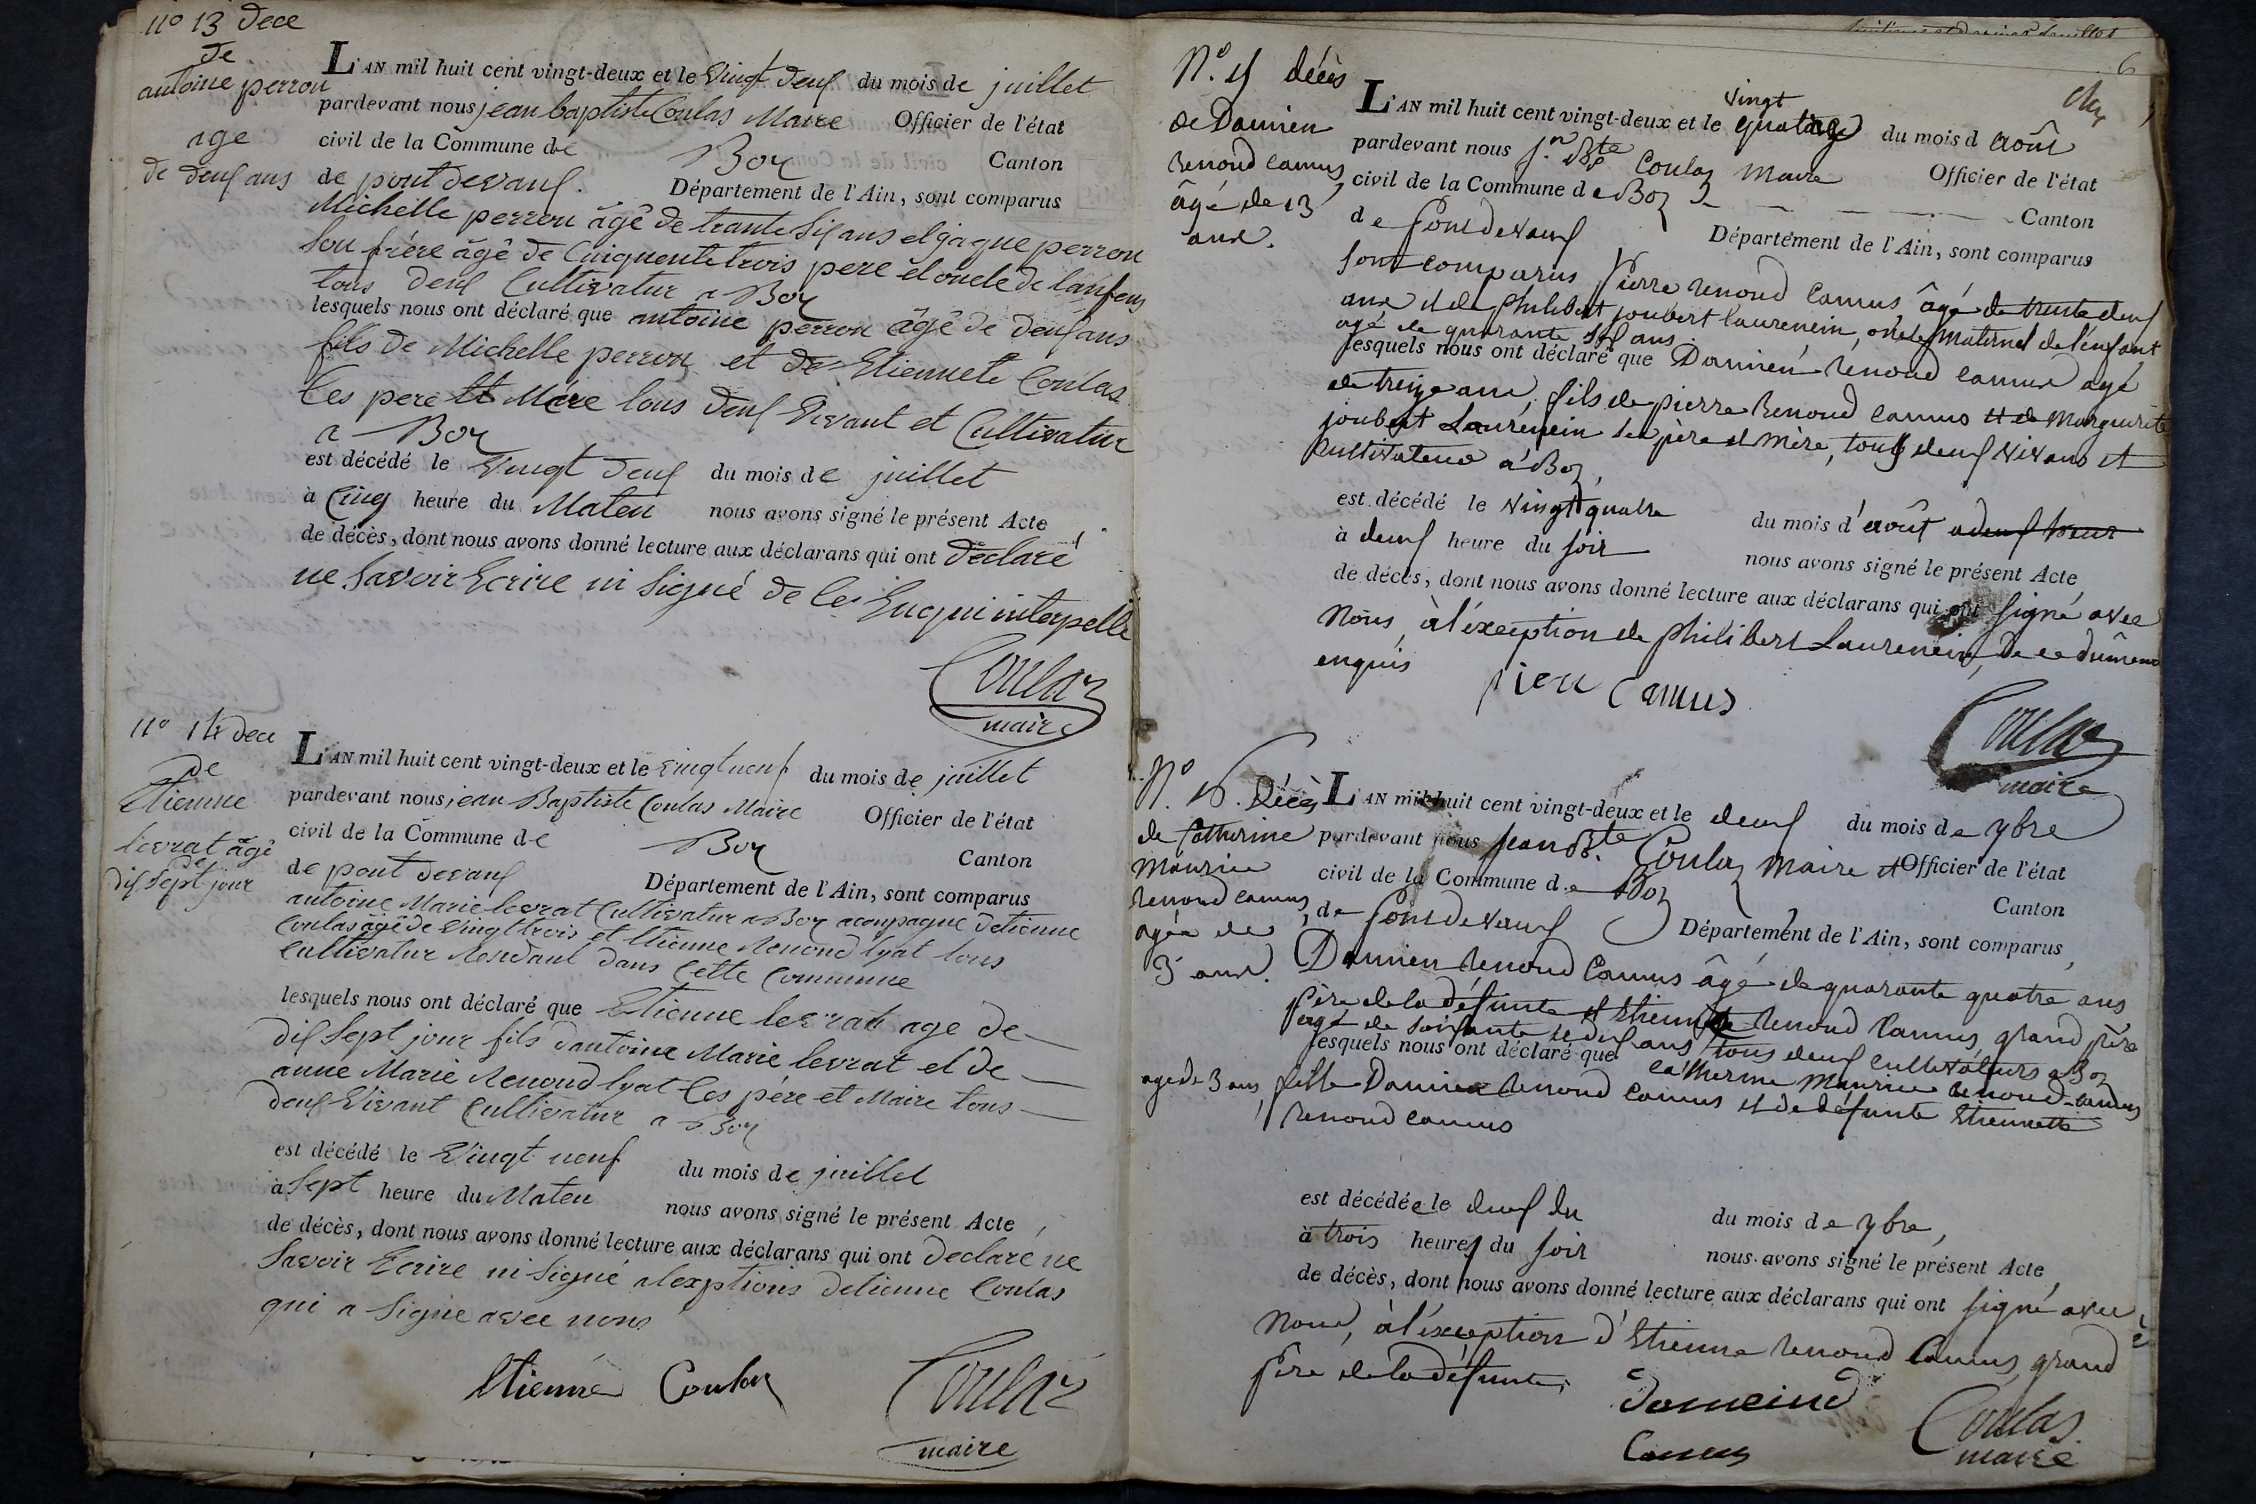 n° 13 dece
de
antoine perron
age
de deux ans
L'AN mil huit cent vingt-deux et le vingt deux du mois de juillet
pardevant nous jean baptiste Coulas Maire Officier de l'état
civil de la Commune de Boz Canton
de pont devaux. Département de l'Ain, sont comparus
Michelle perron âgé de trante six ans et jaque perron
son frère âgé de Cinquente trois pere et oncle de lanfens
tous deux Cultivatur a Boz
lesquels nous ont déclaré que antoine perron âgé de deux ans
fils de Michelle perron et de Etiennete Coulas
Ces pere et Mére tous deux Vivant et Cultivatur
a Boz
est décédé le Vingt deux du mois de juillet
à Cinq heure du Maten nous avons signé le présent Acte
de décès, dont nous avons donné lecture aux déclarans qui ont déclaré
ne Savoir Ecrire ni Signé de ce Enqui interpellé
Coulas
maire
n° 14 dece
de
Etienne
levrat âgé
de
dix Sept jour
L'AN mil huit cent vingt-deux et le vingt neuf du mois de juillet
pardevant nous jean Baptiste Coulas Maire Officier de l'état
civil de la Commune de Boz Canton
de pont devaux Département de l'Ain, sont comparus
antoine Marie levrat Cultivatur a Boz acompagne detienne
Coulas âgé de Vingt trois et Etienne Renoud lyat tous
Cultivatur Residant dans Cette Commune
lesquels nous ont déclaré que Etienne levrat age de
dix Sept jour fils dantoine Marie levrat et de
anne Marie Renoud lyat Ces pére et Maire tous
deux Vivant Cultivatur a Boz
est décédé le Vingt neuf du mois de juillet
à Sept heure du Maten nous avons signé le présent Acte
de décès, dont nous avons donné lecture aux déclarans qui ont declaré ne
Savoir Ecrire ni Signé alexptions detienne Coulas
qui a Signé avec nous
Etienne Coulas Coulas
maire
6
N.° 15 décès
de Damien
Renoud camus
âgé de 13
ans.
L'AN mil huit cent vingt-deux et le vingt quatre du mois d août
pardevant nous J.n Bte Coulas Maire Officier de l'état
civil de la Commune de Boz Canton
de Pont de Vaux Département de l'Ain, sont comparus
sont comparus Pierre renoud Camus, âgé de trente deux
ans et de philibert joubert laurencin, oncle maternel de l'enfant
agé de quarante six ans
lesquels nous ont déclaré que Damien renoud camus agé
de treize ans, fils de pierre Renoud camus et de Marguerite
joubert Laurencin ses père et mère, tous deux vivans et
Cultivateurs à Boz,
est décédé le vingt quatre du mois d'août a deux heur
à deux heure du soir nous avons signé le présent Acte
de décès, dont nous avons donné lecture aux déclarans qui ont signé avec
Nous, à l'exception de philibert Laurencin, de ce dûment
enquis
pieru Camus
Coulas
maire
N.° 16. Décès
de Catherine
Maurice
renoud camus,
agée de
3 ans.
L'AN mil huit cent vingt-deux et le deux du mois de 7bre
pardevant nous Jean Bte. Coulas Maire et Officier de l'état
civil de la Commune de Boz Canton
de Pont de Vaux Département de l'Ain, sont comparus,
Damien renoud Camus âgé de quarante quatre ans
père de la défunte et Etienne renoud Camus, grand père
agé de soixante et dix ans tous deux cultivateurs a Boz
lesquels nous ont déclaré que catherine Maurice renoud camus
agé de 3 ans, fille Damien renoud camus et de défunte Etiennette
renoud camus
est décédée le deux du du mois de 7bre,
à trois heures du soir nous avons signé le présent Acte,
de décès, dont nous avons donné lecture aux déclarans qui ont signé avec
Nous, à l'exception d'Etienne renoud Camus, grand
père de la défunte,
domeind
Camus
Coulas
maire